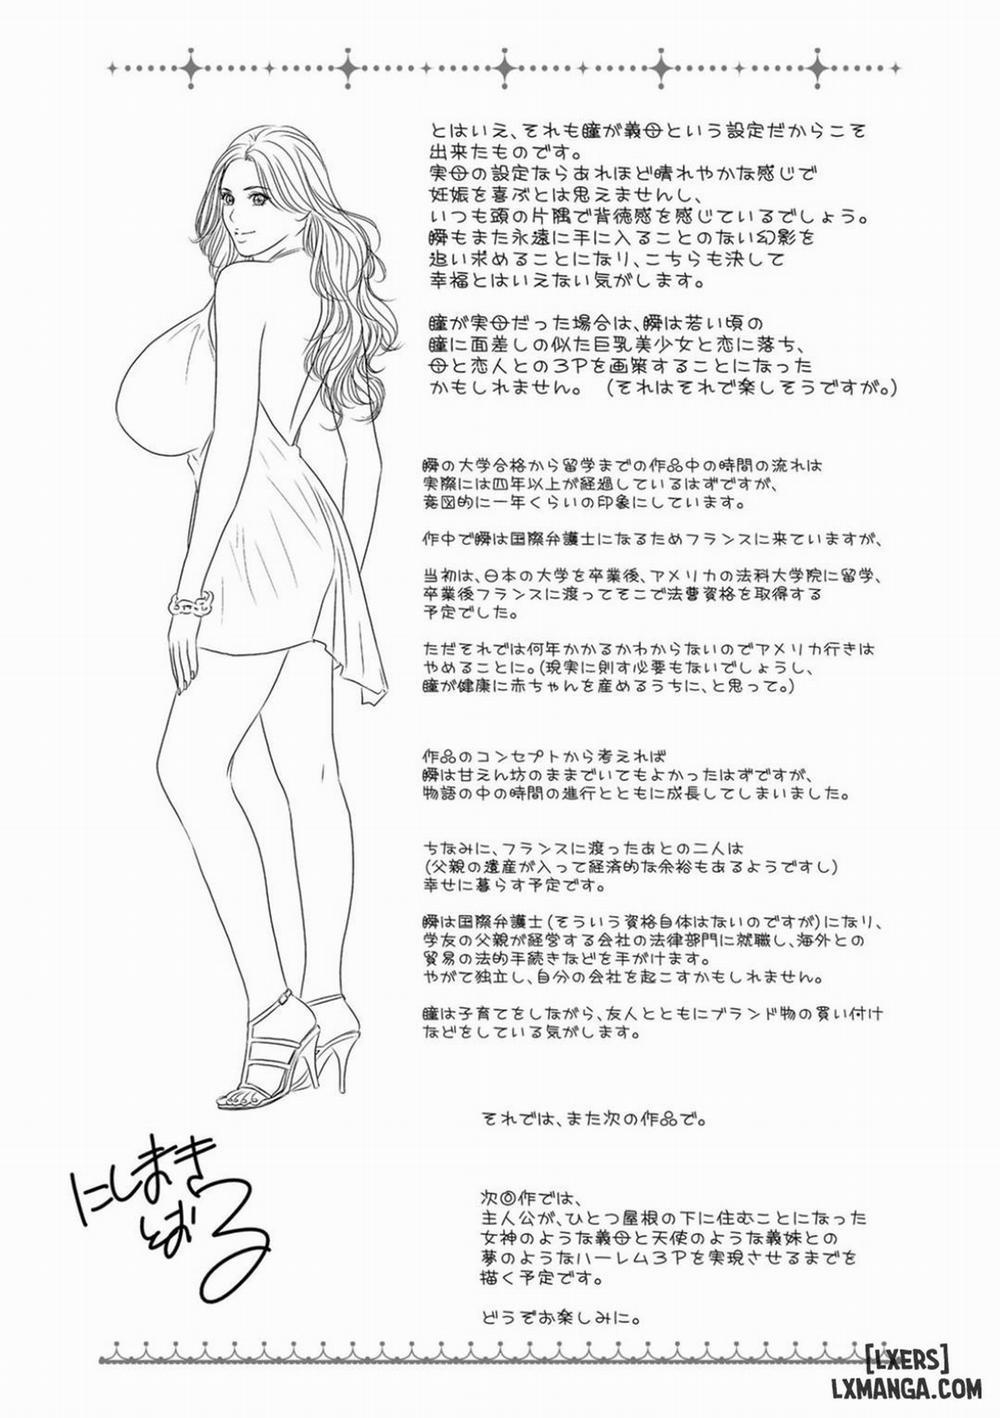 とはいえ、それも瞳が義母という設定だからこそ
出来たものです。
実母の設定ならあれほど晴れやかな感じで
妊娠を喜ぶとは思えませんし、
いつも頭の片隅で背徳感を感じているでしょう。
瞬もまた永遠に手に入ることのない幻影を
追い求めることになり、こちらも決して
幸福とはいえない気がします。
瞳が実母だった場合は、瞬は若い頃の
瞳に面差しの似た巨乳美少女と恋に落ち、
母と恋人との3Pを画策することになった
かもしれません。 (それはそれで楽しそうですが。)
瞬の大学合格から留学までの作品中の時間の流れは
実際には四年以上が経過しているはずですが、
意図的に一年くらいの印象にしています。
作中で瞬は国際弁護士になるためフランスに来ていますが、
当初は、日本の大学を卒業後、アメリカの法科大学院に留学、
卒業後フランスに渡ってそこで法曹資格を取得する
予定でした。
ただそれでは何年かかるかわからないのでアメリカ行きは
やめることに。(現実に則す必要もないでしょうし、
瞳が健康に赤ちゃんを産めるうちに、と思って。)
作品のコンセプトから考えれば
瞬は甘えん坊のままでいてもよかったはずですが、
物語の中の時間の進行とともに成長してしまいました。
ちなみに、フランスに渡ったあとの二人は
(父親の遺産が入って経済的な余裕もあるようですし)
幸せに暮らす予定です。
瞬は国際弁護士(そういう資格自体はないのですが)になり、
学友の父親が経営する会社の法律部門に就職し、海外との
貿易の法的手続きなどを手がけます。
やがて独立し、自分の会社を起こすかもしれません。
瞳は子育てをしながら、友人とともにブランド物の買い付け
などをしている気がします。
それでは、また次の作品で。
にしまき
とおる
次回作では、
主人公が、ひとつ屋根の下に住むことになった
女神のような義母と天使のような義妹との
夢のようなハーレム3Pを実現させるまでを
描く予定です。
どうぞお楽しみに。
[LXERS]
LXMANGA.COM